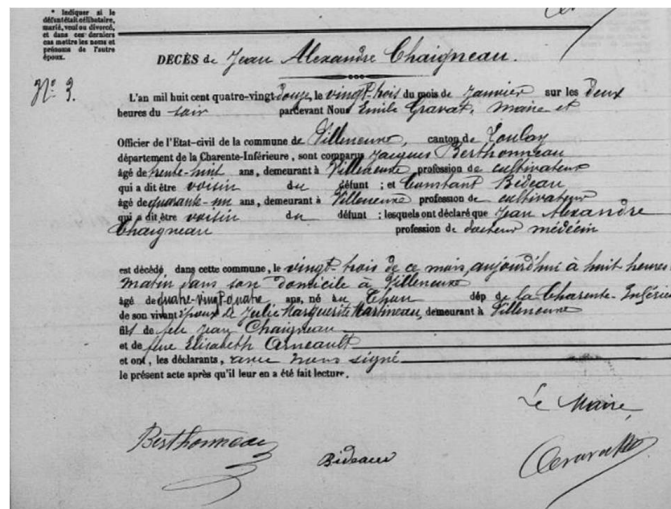 * Indiquer si le
défunt était célibataire,
marié, veuf ou divorcé,
et dans ces derniers
cas mettre les noms et
prénoms de l'autre
époux.
DÉCÈS de Jean Alexandre Chaigneau.
N° 3.
L'an mil huit cent quatre-vingt douze, le vingt-trois du mois de Janvier sur les deux
heures du soir pardevant Nous Emile Gravat, Maire et
Officier de l'Etat-civil de la commune de Villeneuve, canton de Loulay
département de la Charente-Inférieure, sont comparu Jacques Berthonneau
âgé de trente-huit ans, demeurant à Villeneuve profession de cultivateur
qui a dit être voisin du défunt ; et Constant Bideau
âgé de quarante-un ans, demeurant à Villeneuve profession de cultivateur
qui a dit être voisin du défunt ; lesquels ont déclaré que Jean Alexandre
Chaigneau profession de docteur médecin
est décédé dans cette commune, le vingt-trois de ce mois, aujourd'hui à huit heures
matin dans son domicile à Villeneuve
âgé de quatre-vingt-quatre ans, né à dép de la Charente-Inférie
de son vivant époux de Julie Marguerite Martineau, demeurant à Villeneuve
fils de feu Jean Chaigneau
et de feue Elisabeth Arneault
et ont, les déclarants, avec nous signé
le présent acte après qu'il leur en a été fait lecture.
Le Maire,
Berthonneau Bideaux